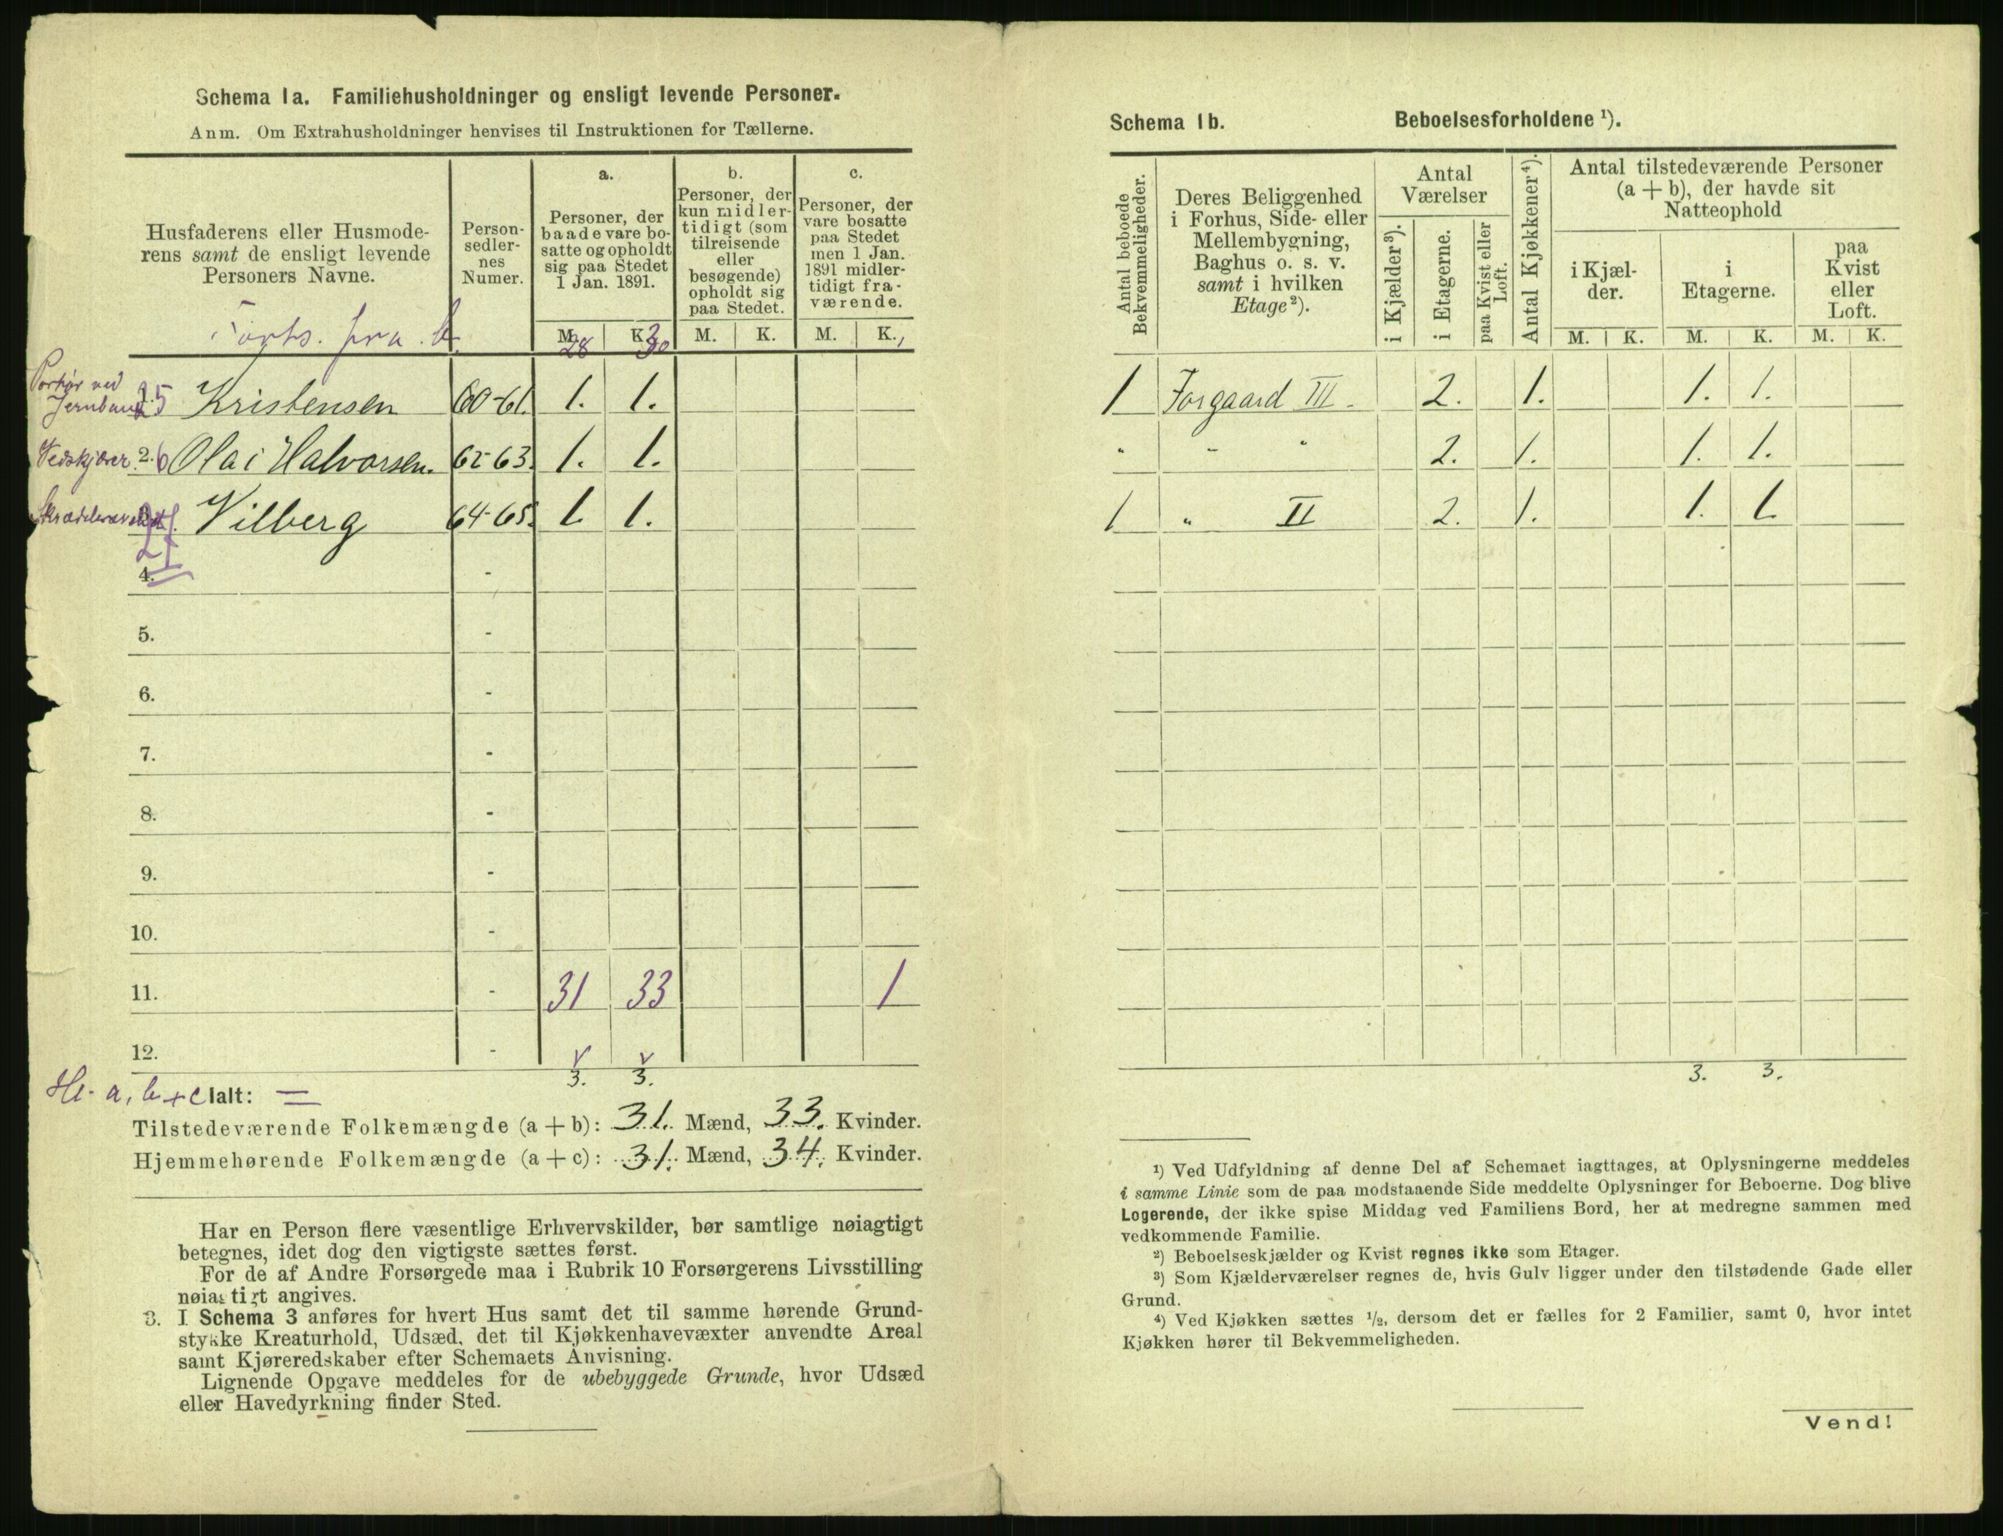 Schema 1 a. Familiehusholdninger og ensligt levende Personer.
Anm. Om Extrahusholdninger henvises til Instruktionen for Tællerne.
Husfaderens eller Husmode-
rens samt de ensligt levende
Personers Navne.
Person-
sedler-
nes
Numer.
a.
Personer, der
baade vare bo-
satte og opholdt
sig paa Stedet
1 Jan. 1891.
b.
Personer, der
kun midler-
tidigt (som
tilreisende
eller
besøgende)
opholdt sig
paa Stedet.
c.
Personer, der
vare bosatte
paa Stedet
men 1 Jan.
1891 midler-
tidigt fra-
værende.
M. K. M. K. M. K.
Forts. fra b. 28 30 1
Portør ved
Jernbane 25 Kristensen 60-61. 1. 1.
Vedskjærer 2.6 Olai Halvorsen. 62-63. 1. 1.
27 Vilberg 64-65. 1. 1.
4. -
5. -
6. -
7. -
8. -
9. -
10. -
11. - 31 33 1
12. -
3. 3.
Hl. a, b + c Ialt: =
Tilstedeværende Folkemængde (a + b): 31. Mænd, 33. Kvinder.
Hjemmehørende Folkemængde (a + c): 31. Mænd, 34. Kvinder.
Har en Person flere væsentlige Erhvervskilder, bør samtlige nøiagtigt
betegnes, idet dog den vigtigste sættes først.
For de af Andre Forsørgede maa i Rubrik 10 Forsørgerens Livsstilling
nøiagtigt angives.
3. I Schema 3 anføres for hvert Hus samt det til samme hørende Grund-
stykke Kreaturhold, Udsæd, det til Kjøkkenhavevæxter anvendte Areal
samt Kjøreredskaber efter Schemaets Anvisning.
Lignende Opgave meddeles for de ubebyggede Grunde, hvor Udsæd
eller Havedyrkning finder Sted.
Schema 1 b. Beboelsesforholdene ¹).
Antal beboede
Bekvemmeligheder.
Deres Beliggenhed
i Forhus, Side- eller
Mellembygning,
Baghus o. s. v.
samt i hvilken
Etage ²).
Antal
Værelser
i Kjælder ³).
i Etagerne.
paa Kvist eller
Loft.
Antal Kjøkkener ⁴).
Antal tilstedeværende Personer
(a + b), der havde sit
Natteophold
i Kjæl-
der.
i
Etagerne.
paa
Kvist
eller
Loft.
M. K. M. K. M. K.
1 Forgaard III. 2. 1. 1. 1.
" " " 2. 1. 1. 1.
1 " II 2. 1. 1. 1.
3. 3.
¹) Ved Udfyldning af denne Del af Schemaet iagttages, at Oplysningerne meddeles
i samme Linie som de paa modstaaende Side meddelte Oplysninger for Beboerne. Dog blive
Logerende, der ikke spise Middag ved Familiens Bord, her at medregne sammen med
vedkommende Familie.
²) Beboelseskjælder og Kvist regnes ikke som Etager.
³) Som Kjælderværelser regnes de, hvis Gulv ligger under den tilstødende Gade eller
Grund.
⁴) Ved Kjøkken sættes ½, dersom det er fælles for 2 Familier, samt 0, hvor intet
Kjøkken hører til Bekvemmeligheden.
Vend!